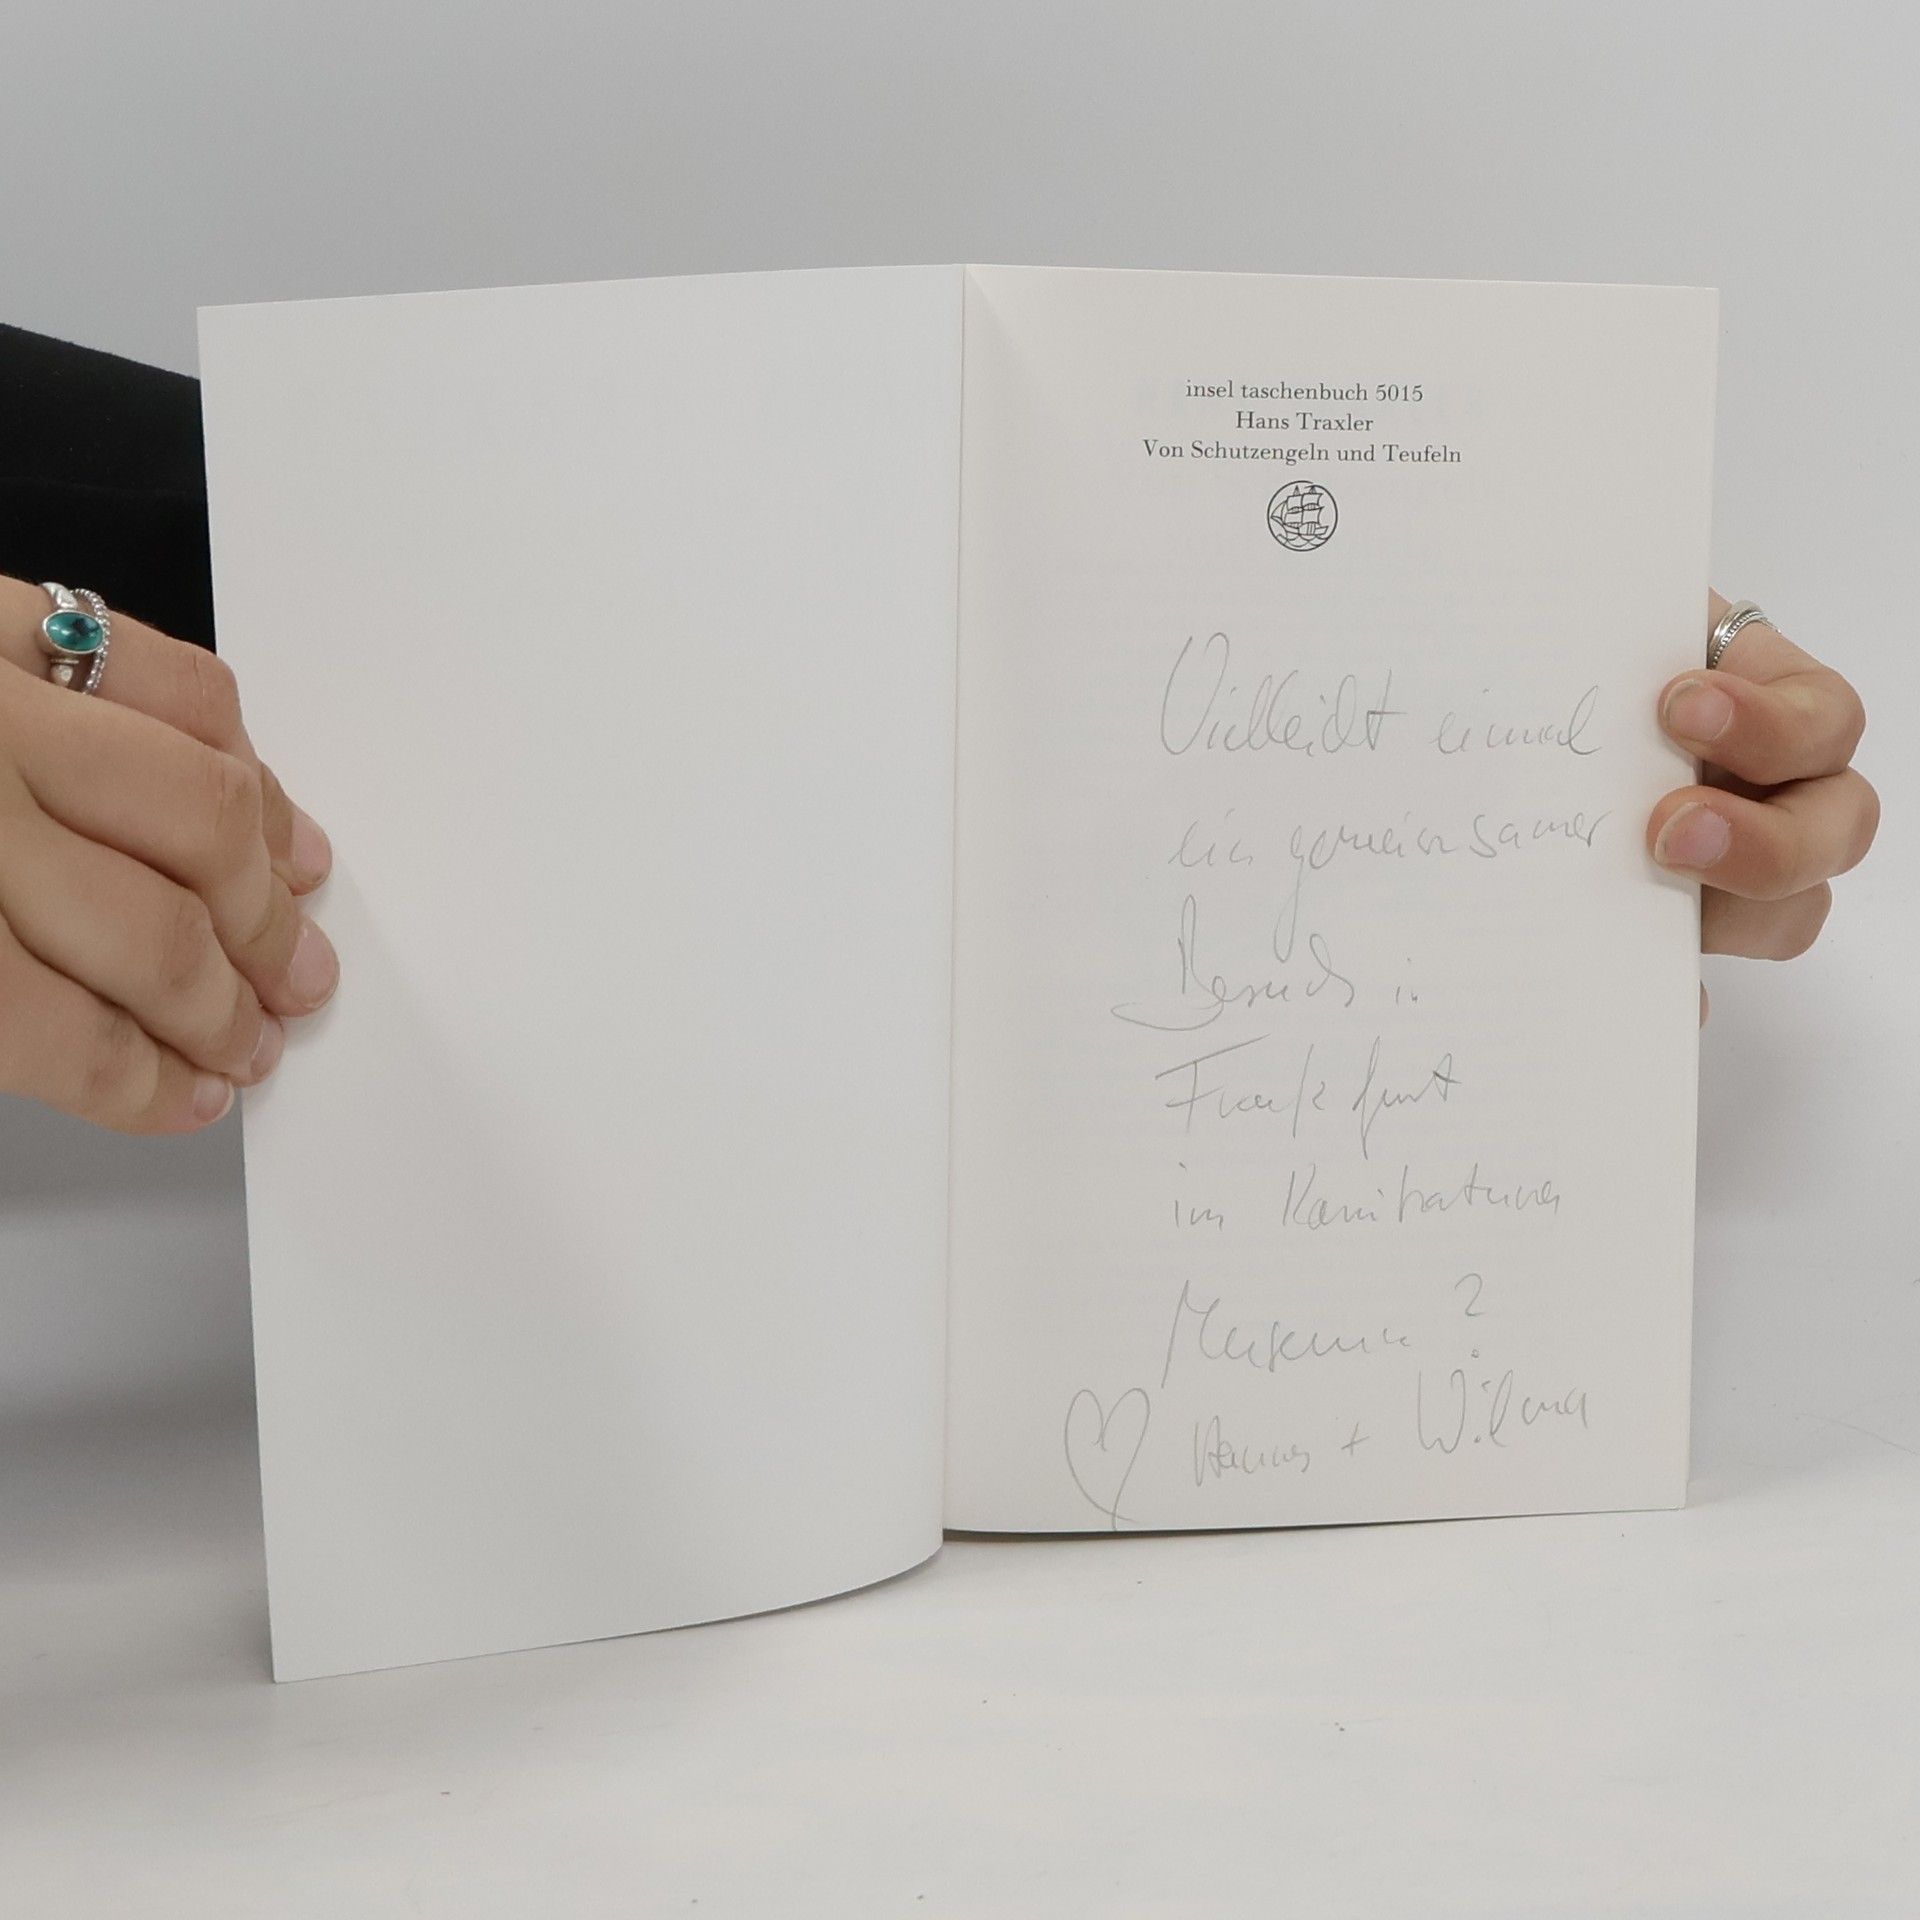 insel taschenbuch 5015
Hans Traxler
Von Schutzengeln und Teufeln
Vielleicht einmal
ein gemeinsamer
Besuch in
Frankfurt
im Karikaturen
Museum ?
Hannes + Wilma